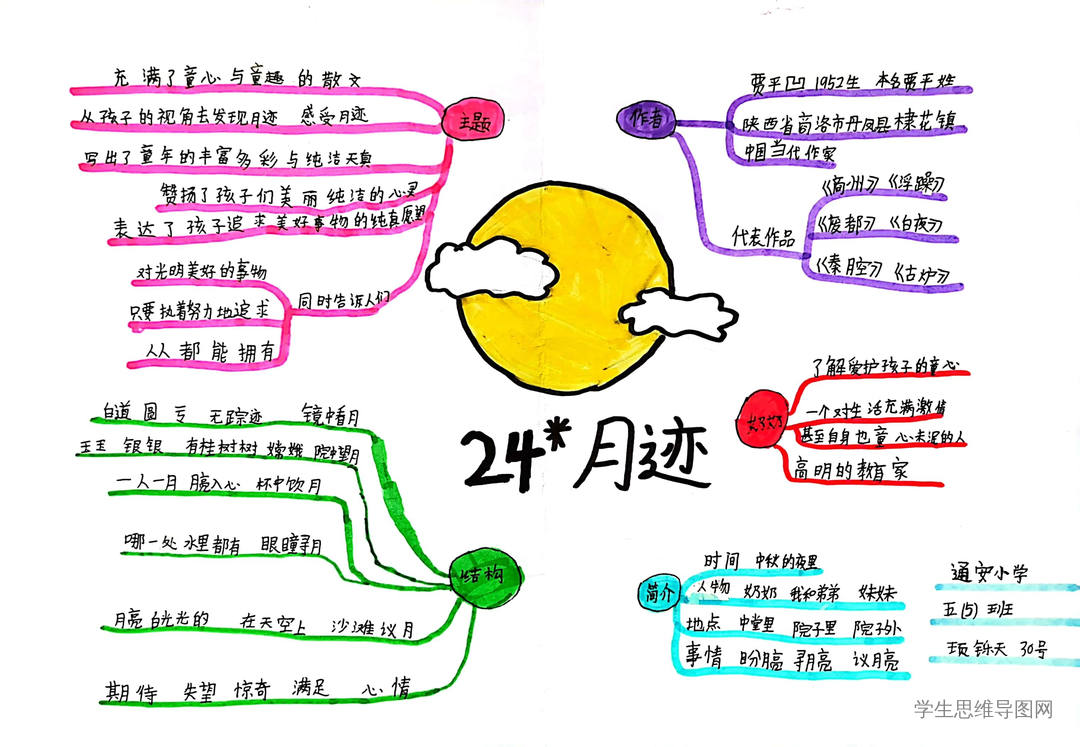 主题
充满了童心与童趣的散文
从孩子的视角去发现月迹 感受月迹
写出了童年的丰富多彩与纯洁天真
赞扬了孩子们美丽纯洁的心灵
表达了孩子追求美好事物的纯真愿望
同时告诉人们
对光明美好的事物
只要执着努力地追求
人人都能拥有
作者
贾平凹 1952生 本名贾平娃
陕西省商洛市丹凤县棣花镇
中国当代作家
代表作品
《商州》《浮躁》
《废都》《白夜》
《秦腔》《古炉》
24*月迹
奶奶
了解爱护孩子的童心
一个对生活充满激情
甚至自身也童心未泯的人
高明的教育家
结构
白道 圆 亏 无踪迹 镜中看月
玉玉 银银 有桂树树 嫦娥 院中望月
一人一月 月亮入心 杯中饮月
哪一处水里都有 眼瞳寻月
月亮 白光光的 在天空上 沙滩议月
期待 失望 惊奇 满足 心情
简介
时间 中秋的夜里
人物 奶奶 我和弟弟 妹妹
地点 中堂里 院子里 院子外
事情 盼月亮 寻月亮 议月亮
通安小学
五(5)班
铄天 30号
学生思维导图网